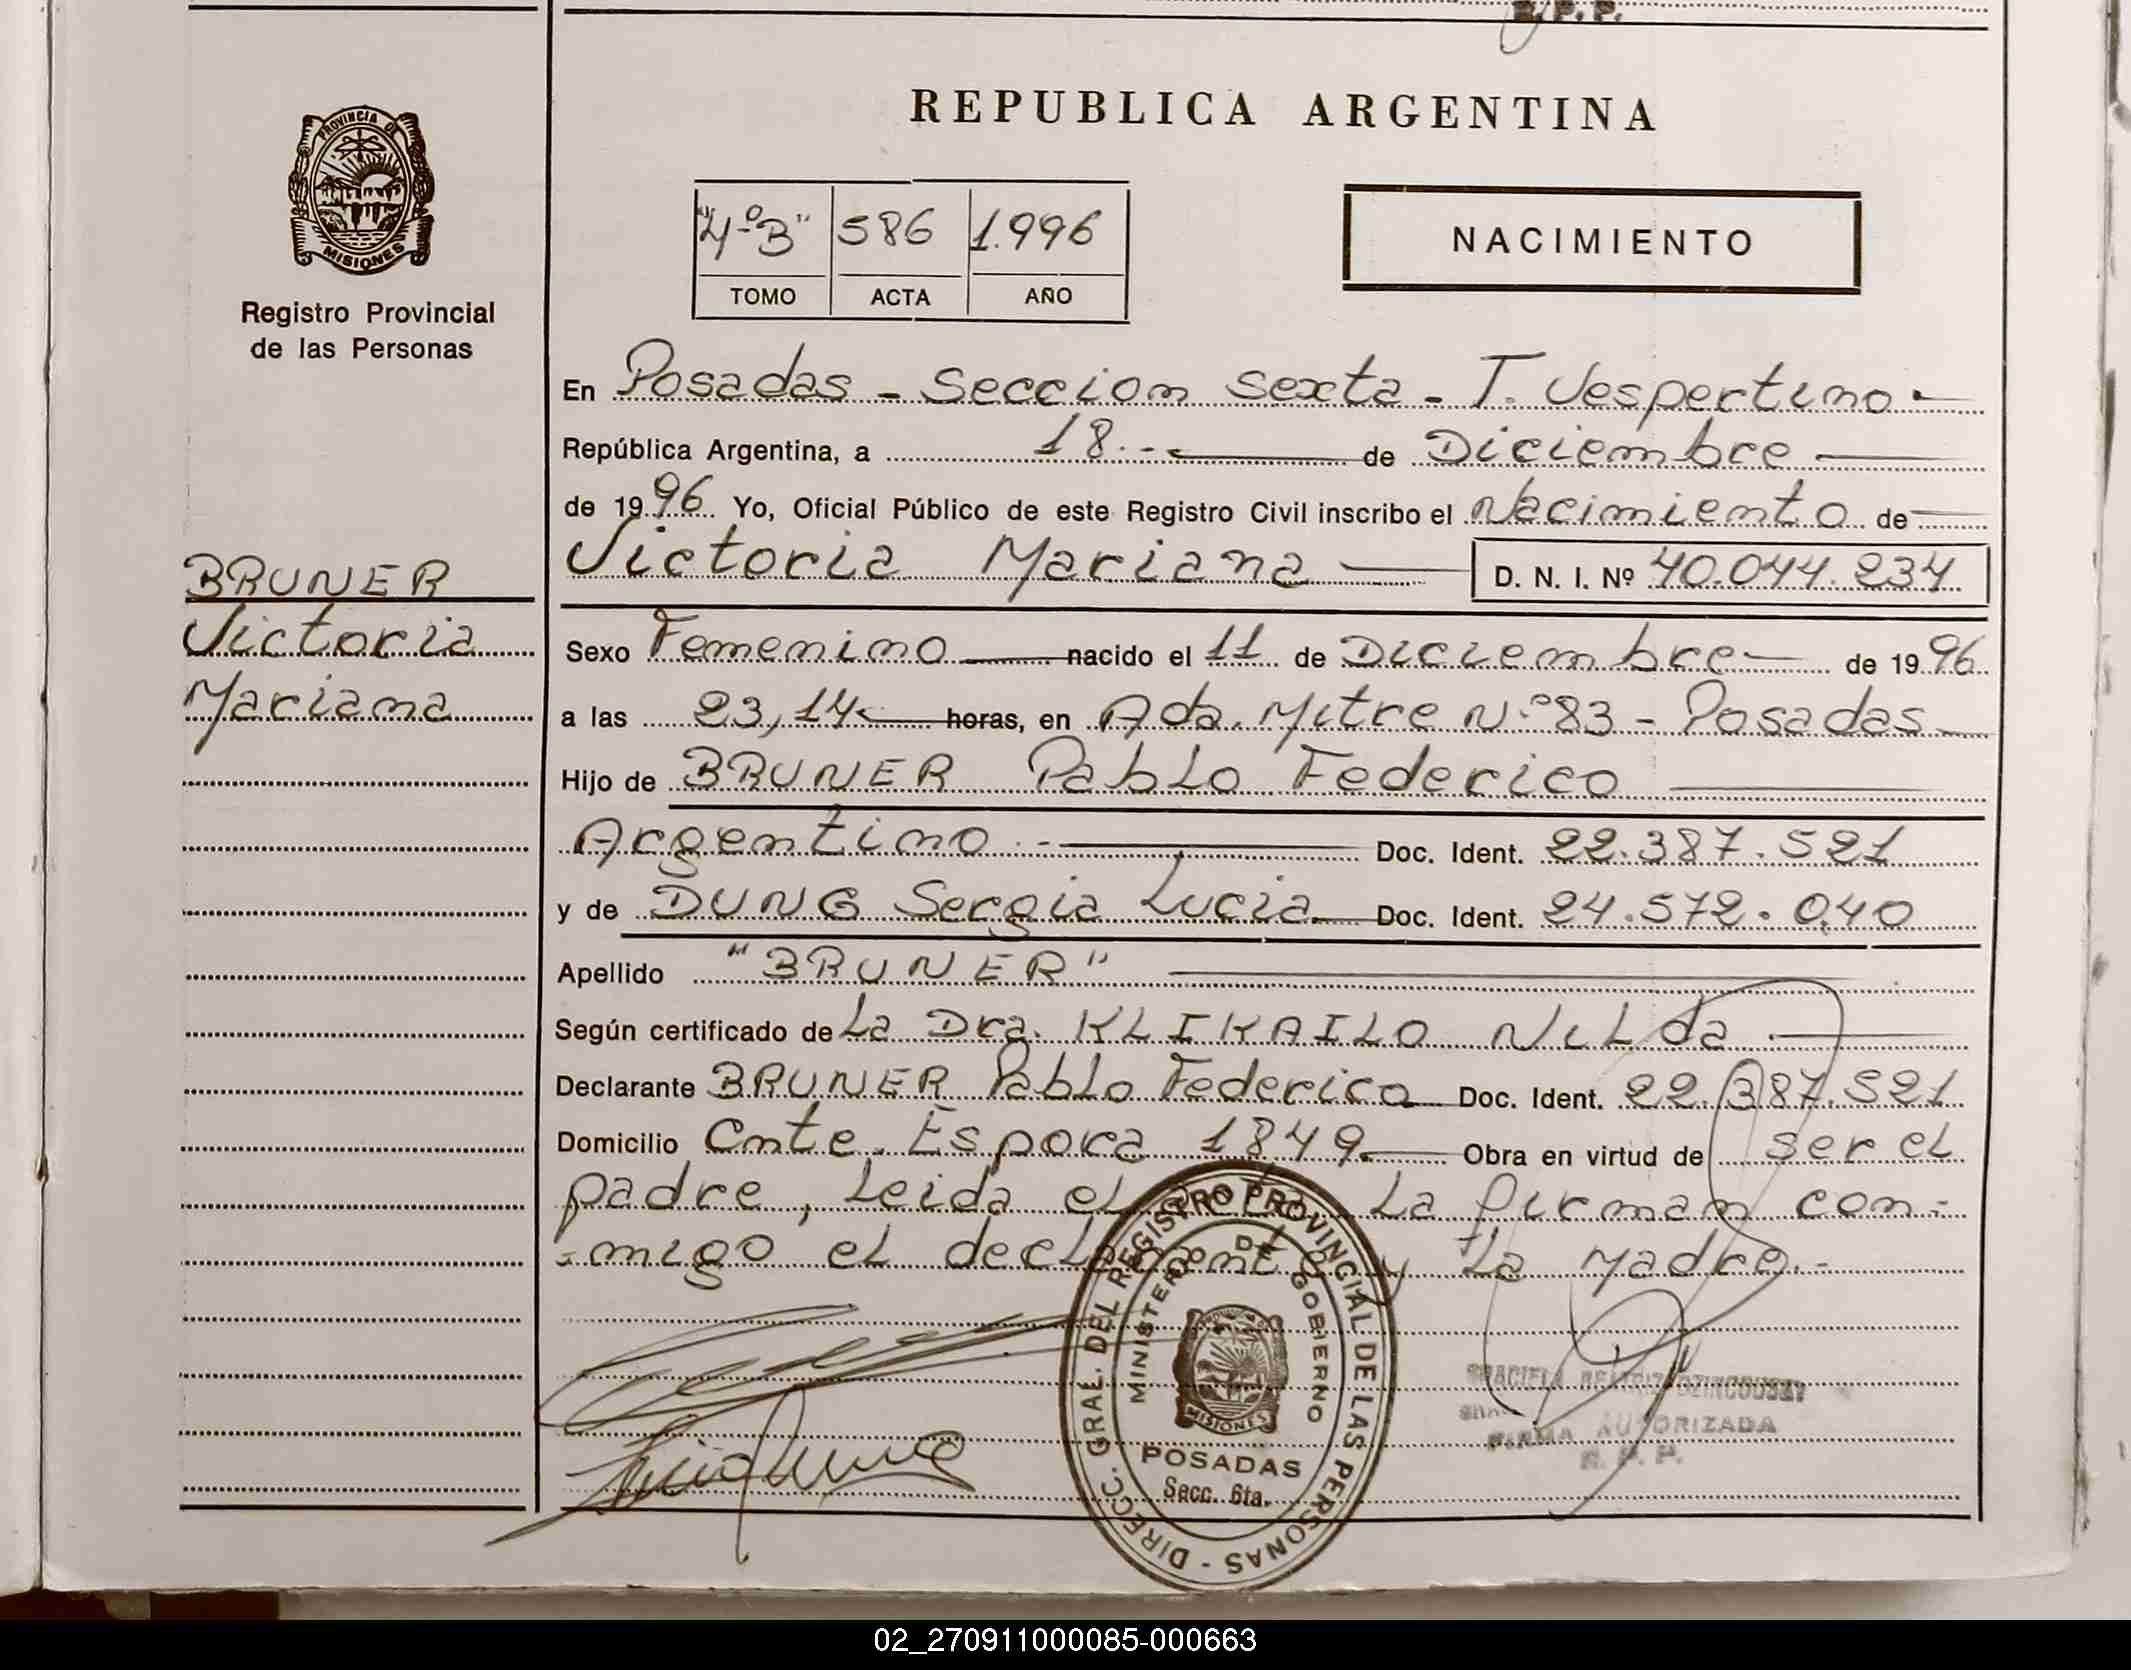 R. P. P.
REPUBLICA ARGENTINA
PROVINCIA DE
MISIONES
Registro Provincial
de las Personas
"4º B" 586 1.996
TOMO ACTA AÑO
NACIMIENTO
En Posadas - Seccion Sexta - T. Vespertino.-
República Argentina, a 18.- de Diciembre
de 1996 Yo, Oficial Público de este Registro Civil inscribo el Nacimiento de
Victoria Mariana D. N. I. Nº 40.044.234
BRUNER
Victoria
Mariana
Sexo Femenino nacido el 11 de Diciembre de 1996
a las 23,14 horas, en Ada. Mitre Nº 83 - Posadas
Hijo de BRUNER Pablo Federico
Argentino.- Doc. Ident. 22.387.521
y de DUNG Sergia Lucia Doc. Ident. 24.572.040
Apellido "BRUNER"
Según certificado de La Dra. KLIKAILO NiLda
Declarante BRUNER Pablo Federico Doc. Ident. 22.387.521
Domicilio Cnte. Espora 1849 Obra en virtud de ser el
padre, Leida el La firman con-
-migo el declarante y La Madre.-
DIRECC. GRAL. DEL REGISTRO PROVINCIAL DE LAS PERSONAS -
MINISTERIO DE GOBIERNO
MISIONES
POSADAS
Secc. 6ta.
GRACIELA BEATRIZ
FIRMA AUTORIZADA
R. P. P.
02_270911000085-000663